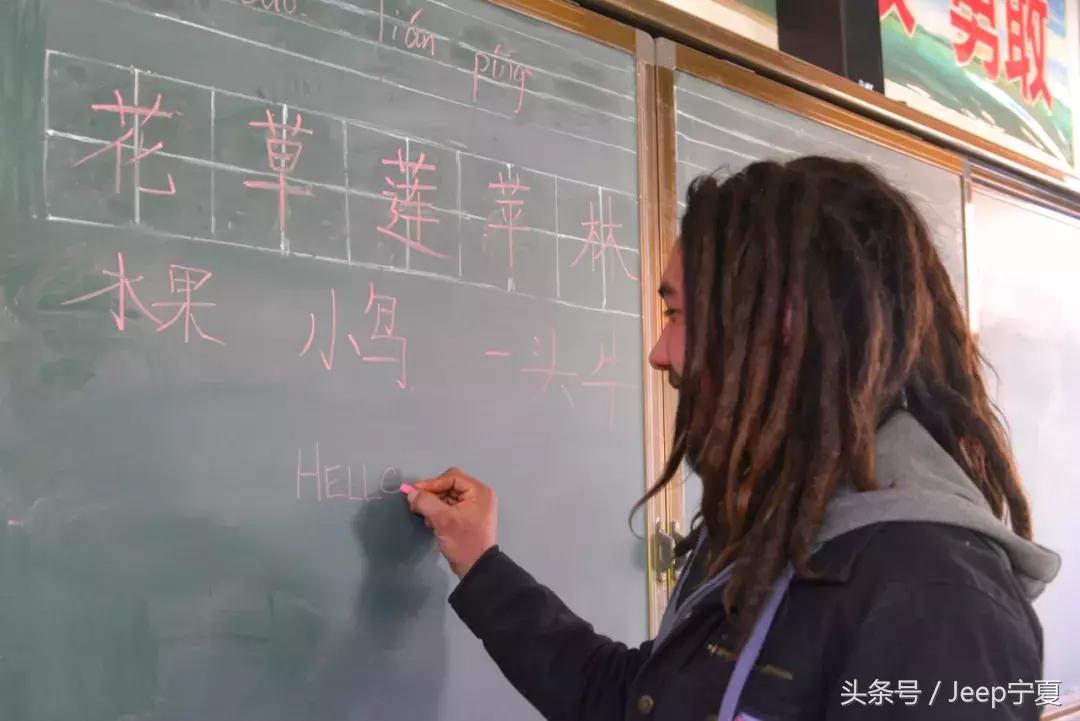 lián píng
勇敢
花 草 莲 苹 林
水果 小鸟 一头牛
HELLO
头条号 / Jeep宁夏